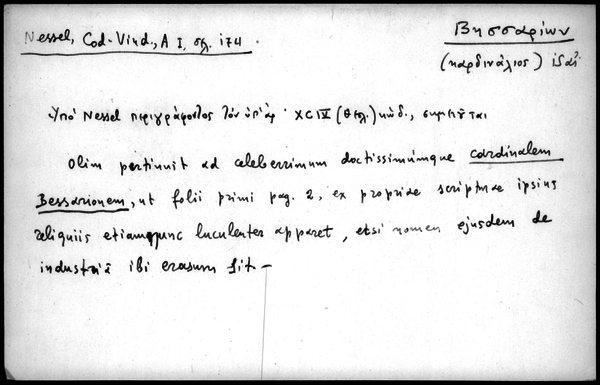 Nessel, Cod. Vind., A I, σελ. 174.
Βησσαρίων
(καρδινάλιος)
Ὑπό Nessel περιγράφοντος τόν ὑπ' ἀρ. XCIV (θεολ.) κώδ., σημειοῦται
Olim pertinuit ad celeberrimum doctissimumque Cardinalem
Bessarionem, ut folii primi pag. 2, ex propriae scripturae ipsius
reliquiis etiamnunc luculenter apparet, etsi nomen ejusdem de
industriâ ibi erasum sit –